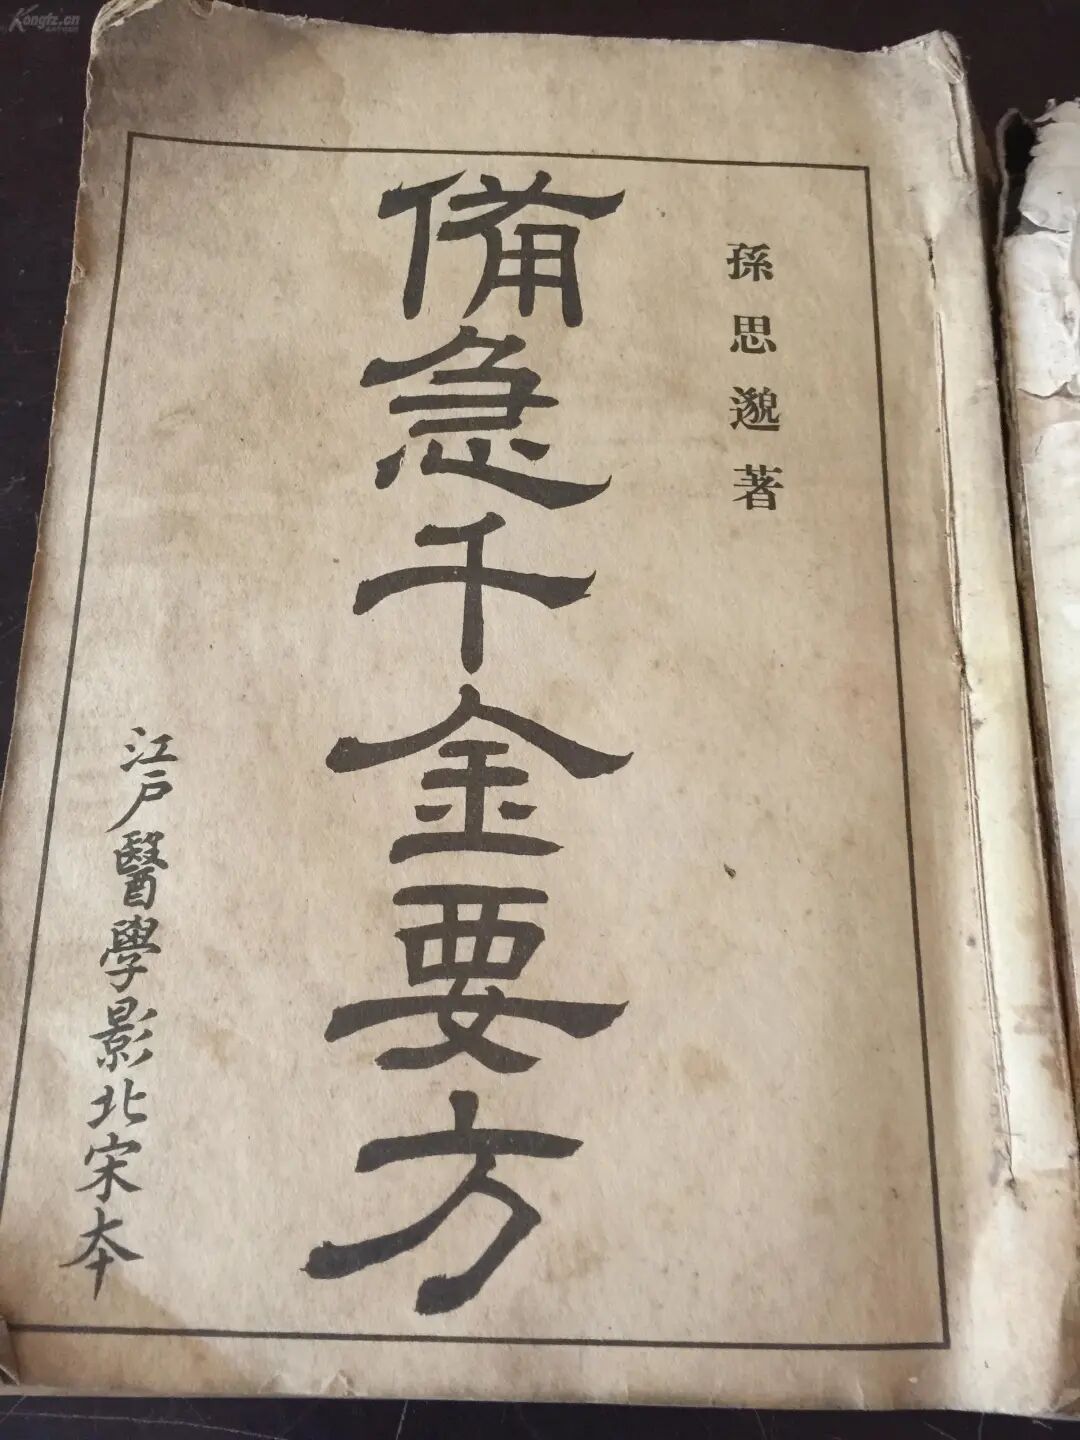 Kongfz.cn
孫思邈著
備急千金要方
江戸醫學影北宋本